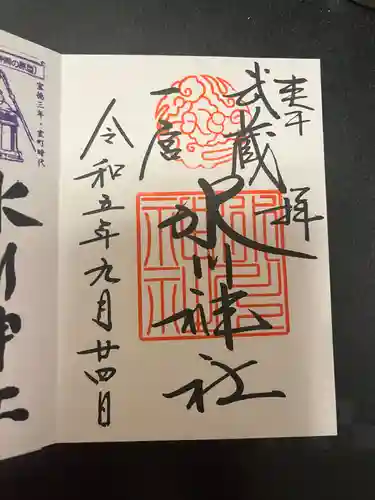 奉拝
武蔵
一宮
氷川神社
令和五年九月廿四日
氷川神社
宝徳三年・室町時代